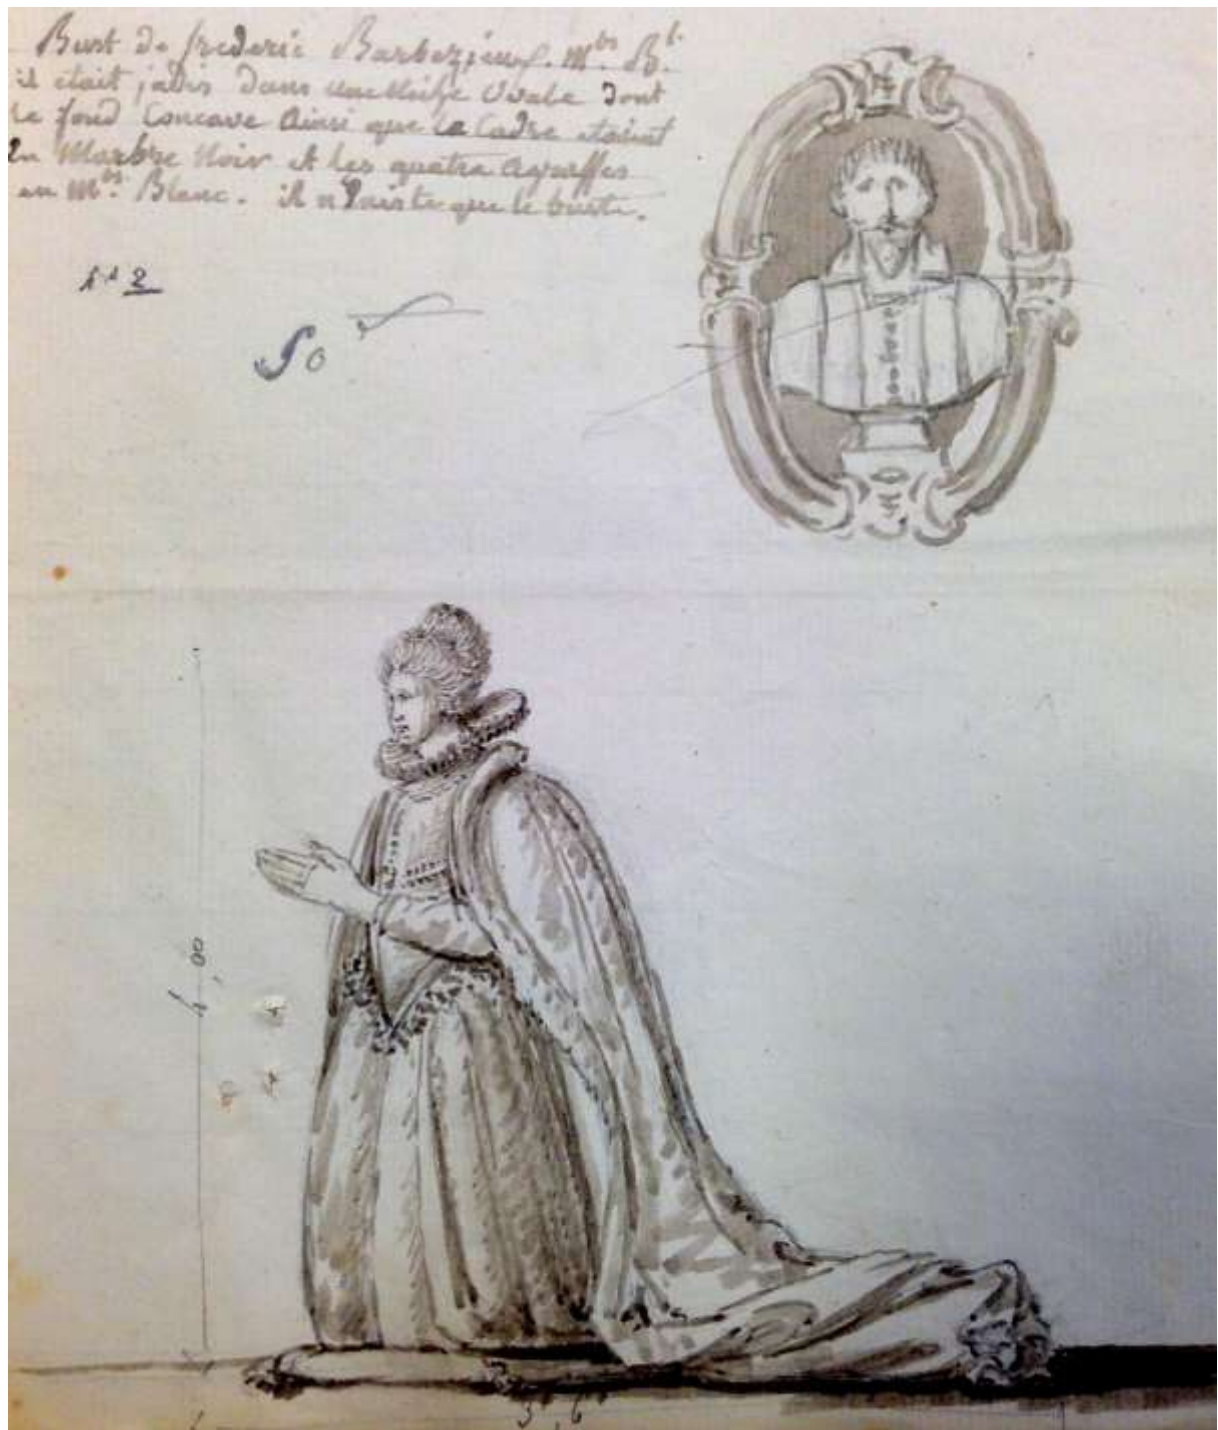 Bust de frederic Barbezieux. Mbre. Bl.
il était jadis dans une Niche Ovale dont
le fond Concave Ainsi que le Cadre étaient
En Marbre Noir et les quatre Agraffes
en Mbre. Blanc. il n'Existe que le buste.
So
4,00
3,6